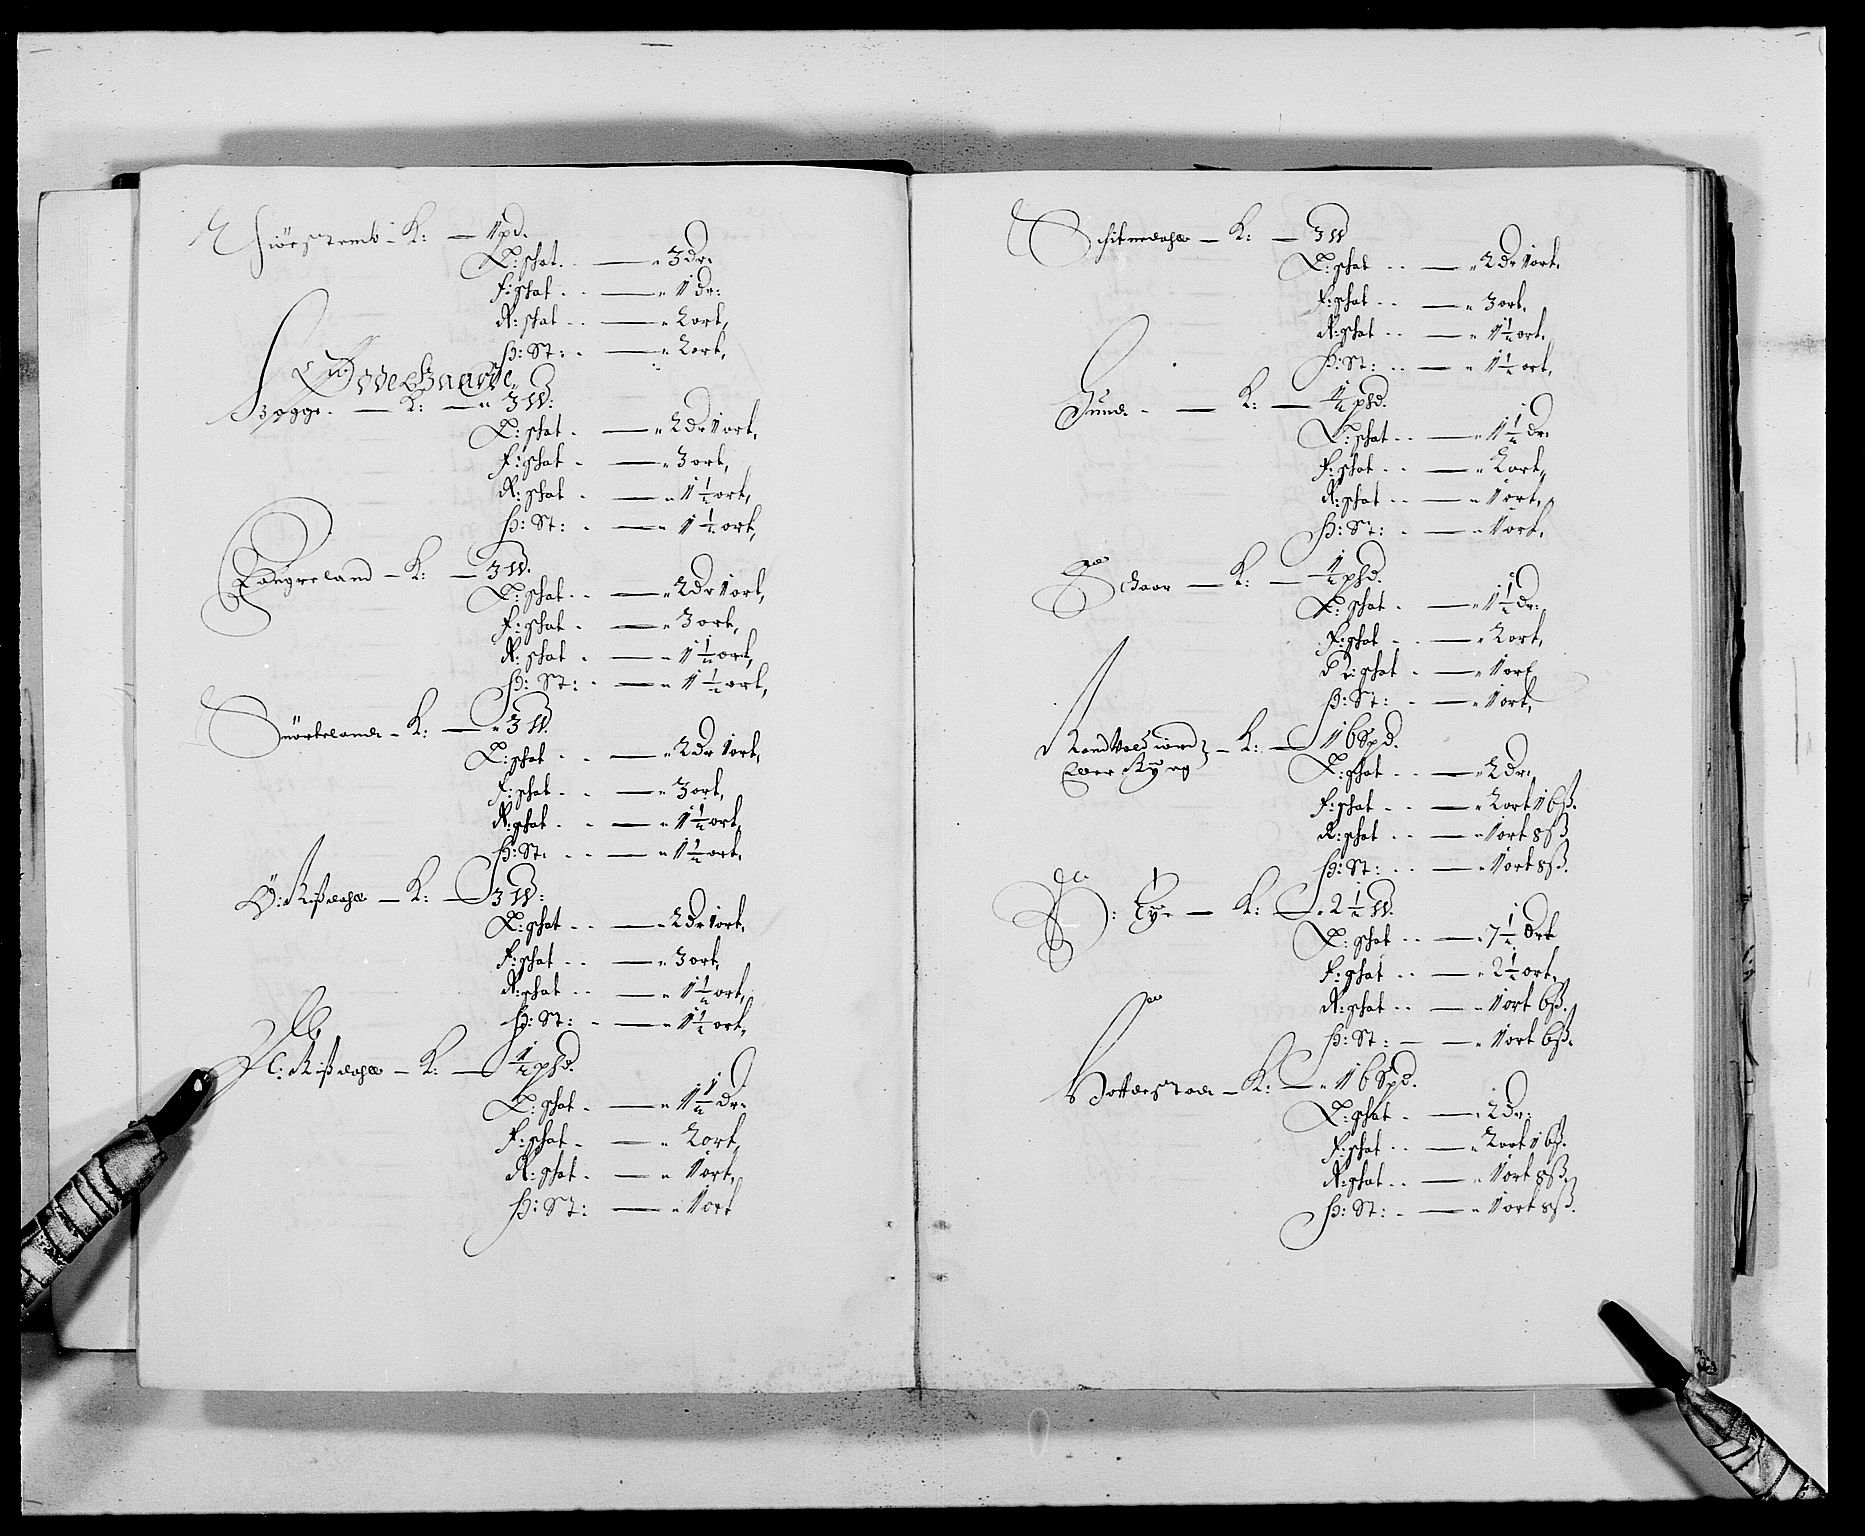 K: — 1 pd.
L: schat. — 3 dr:
F: schat — 1 dr:
R: schat — 2 ort,
H: St: — 2 ort,
Ødde Gaarde
K: — 3 W:
L: schat — 2 dr 1 ort,
F: schat — 3 ort,
R: schat — 1 1/2 ort,
H: St: — 1 1/2 ort,
K: — 3 W.
L: schat — 2 dr 1 ort,
F: schat — 3 ort,
R: schat — 1 1/2 ort,
H: St: — 1 1/2 ort,
K: — 3 W.
L: schat — 2 dr 1 ort,
F: schat — 3 ort,
R: schat — 1 1/2 ort,
H: St: — 1 1/2 ort.
Ø: Rißdahll — K: — 3 W:
L: schat — 2 dr 1 ort,
F: schat — 3 ort,
R: schat — 1 1/2 ort,
H: St: — 1 1/2 ort,
Rißdahll — K: — 1/2 psd.
L: schat — 1 1/2 dr:
F: schat — 2 ort,
R: schat — 1 ort,
H: St: — 1 ort
K: — 3 W
L: schat — 2 dr 1 ort.
F: schat — 3 ort.
R: schat — 1 1/2 ort.
H: St: — 1 1/2 ort,
Sund — K: — 1/2 psd.
L: schat — 1 1/2 dr:
F: schat — 2 ort,
R: schat — 1 ort,
H: St: — 1 ort.
K: — 1/2 psd.
L: schat — 1 1/2 dr:
F: schat — 2 ort,
R: schat — 1 ort
H: St: — 1 ort,
K: — 16 Spd.
L: schat — 2 dr:
F: schat — 2 ort 16 ß.
R: schat — 1 ort 8 ß
H: St: — 1 ort 8 ß.
K: — 2 1/2 W.
L: schat — 7 1/2 Ort
F: schat — 2 1/2 ort,
R: schat — 1 ort 6 ß.
H: St: — 1 ort 6 ß.
K: — 16 Spd.
L: schat — 2 dr:
F: schat — 2 ort 16 ß.
R: schat — 1 ort 8 ß.
H: St: — 1 ort 8 ß.